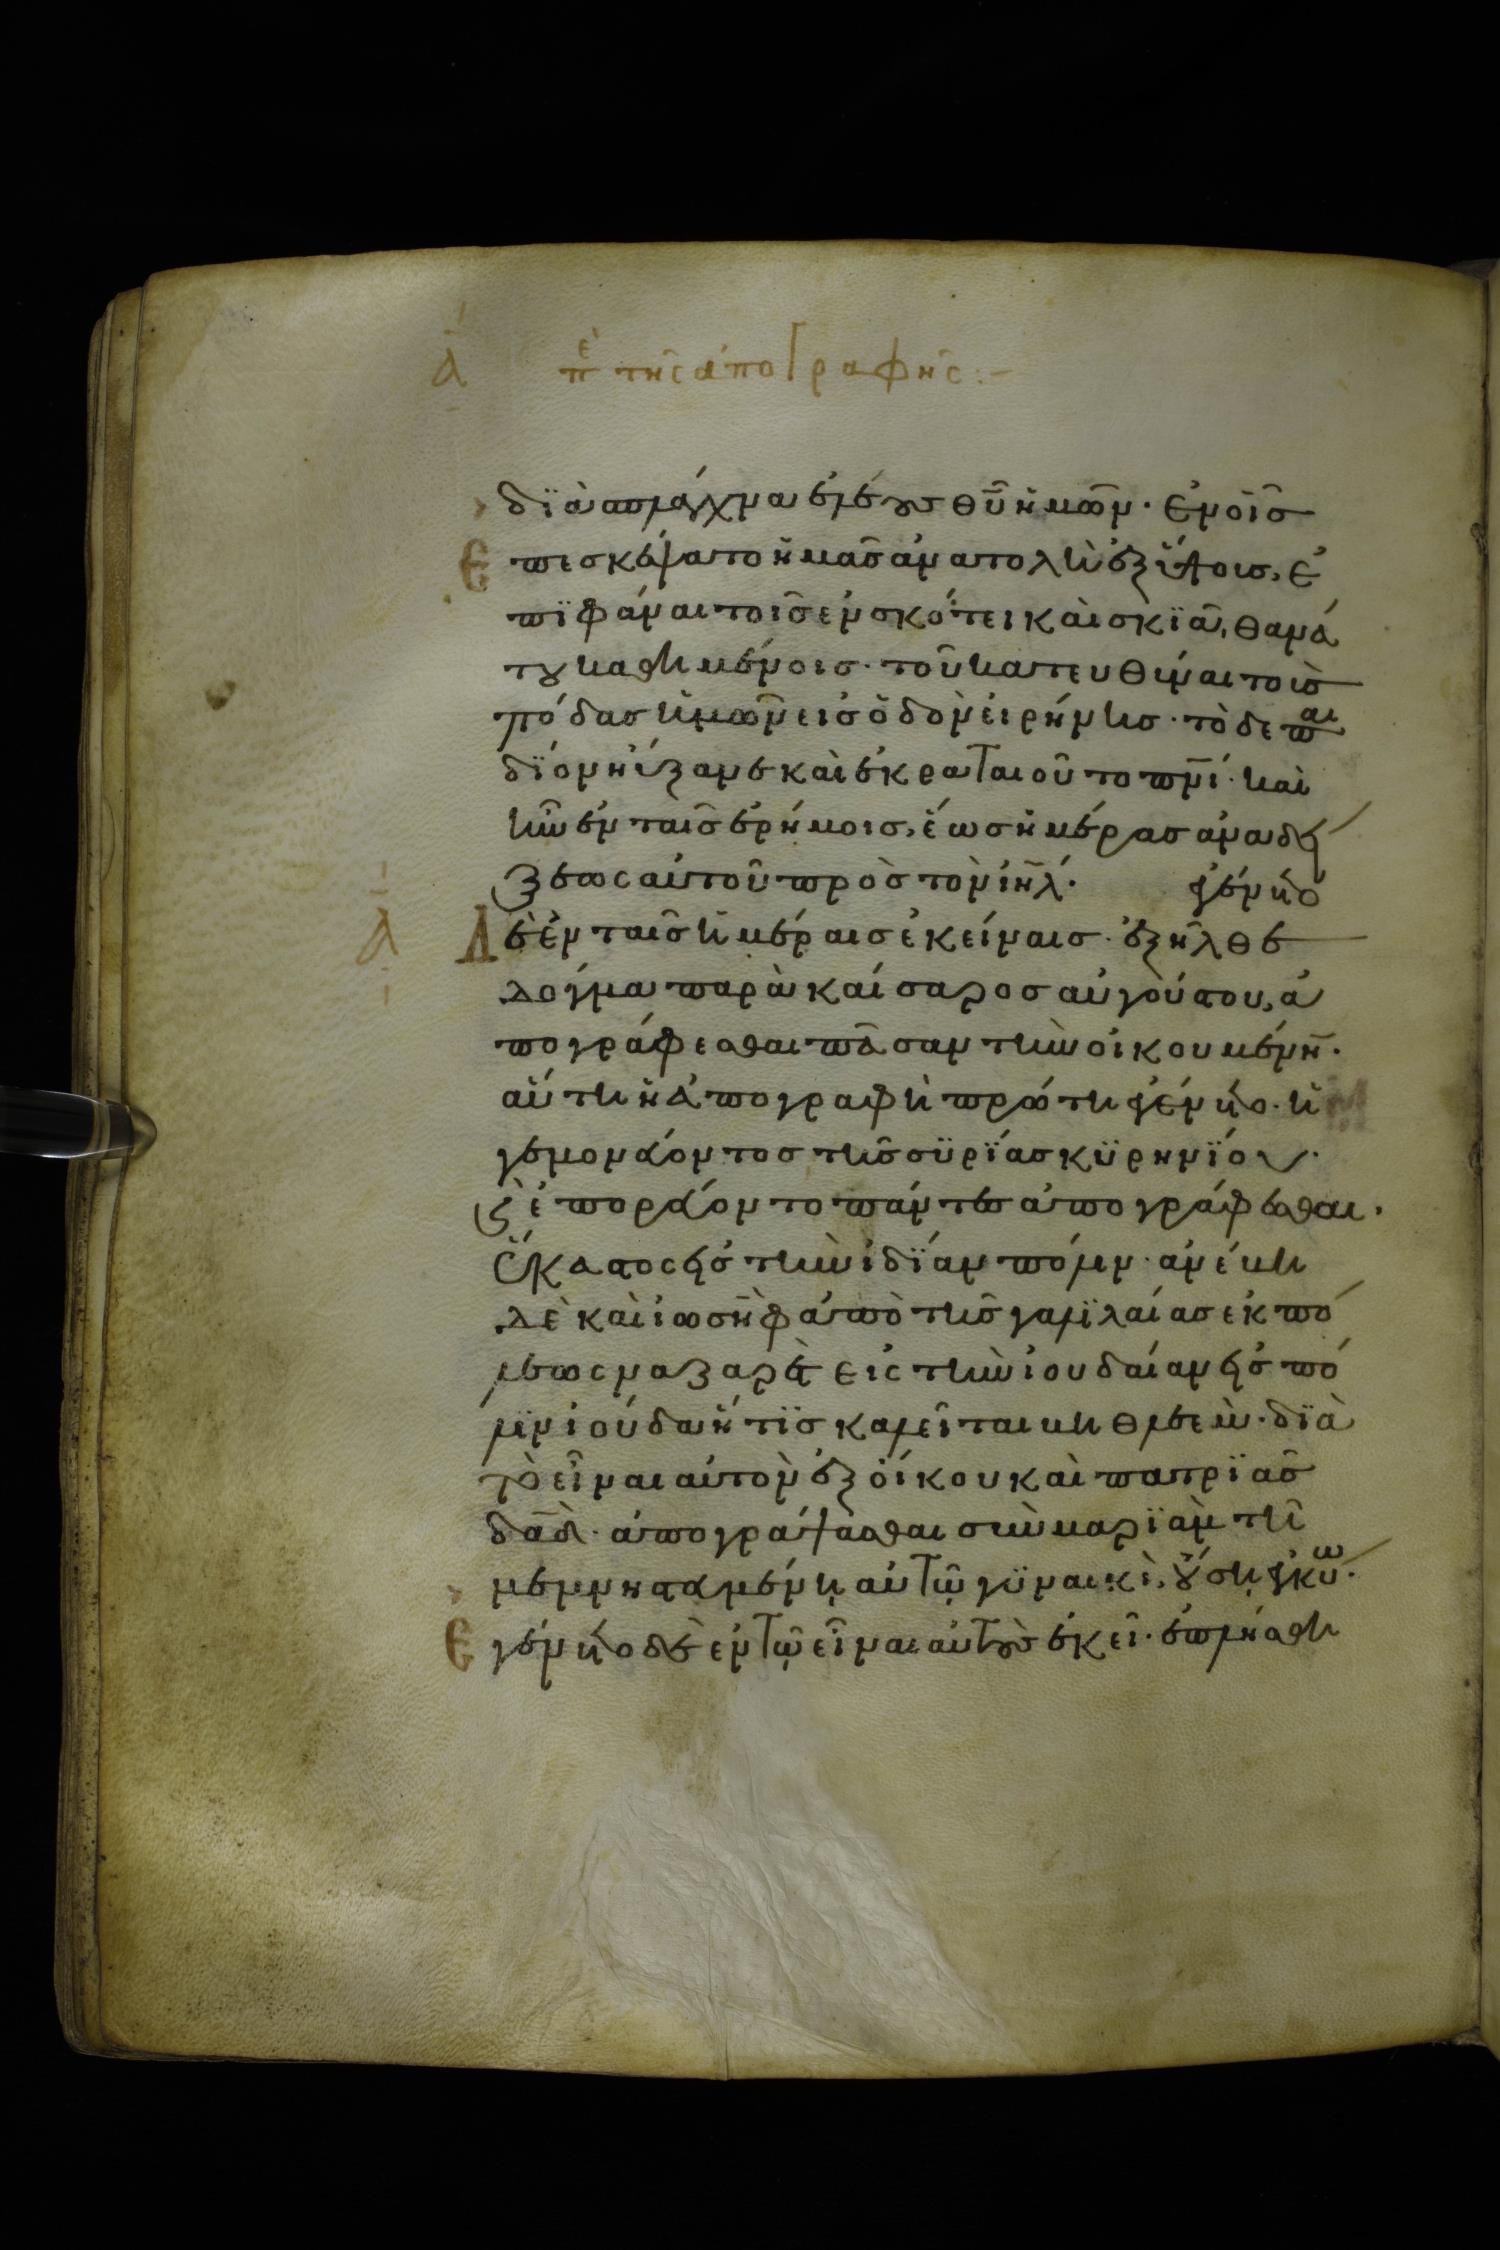 Α πε τῆς ἀπογραφῆς :-
διὰ σπλάγχνα ἐλέους θῦ ἡμῶν· ἐν οἷς
ἐπεσκέψατο ἡμᾶς ἀνατολὴ ἐξ ὕψους, ἐ
πιφᾶναι τοῖς ἐν σκότει καὶ σκιᾶ, θανά
του καθημένοις· τοῦ κατευθῦναι τοὺς
πόδας ἡμῶν εἰς ὁδὸν εἰρήνης· τὸ δὲ παι
δίον ηὔξανε καὶ ἐκραταιοῦτο πνι· καὶ
ἦν ἐν ταῖς ἐρήμοις, ἕως ἡμέρας ἀναδεί
ξεως αὐτοῦ πρὸς τὸν ιηλ· ἐγένετο
Α δὲ ἐν ταῖς ἡμέραις ἐκείναις· ἐξῆλθε
δόγμα παρὰ καίσαρος αὐγούστου, ἀ
πογράφεσθαι πᾶσαν τὴν οἰκουμένην·
αὕτη ἡ ἀπογραφὴ πρώτη ἐγένετο· ἡ
γεμονεύοντος τῆς συρίας κυρηνίου·
καὶ ἐπορεύοντο πάντες ἀπογράφεσθαι·
ἕκαστος εἰς τὴν ἰδίαν πόλιν· ἀνέβη
δὲ καὶ ἰωσὴφ ἀπὸ τῆς γαλιλαίας ἐκ πό
λεως ναζαρὲτ εἰς τὴν ἰουδαίαν εἰς πό
λιν ἰούδα ἥτις καλεῖται βηθλεέμ· διὰ
τὸ εἶναι αὐτὸν ἐξ οἴκου καὶ πατριᾶς
δαδ· ἀπογράψασθαι σὺν μαριὰμ τῆ
μεμνηστευμένη αὐτῶ γυναικὶ, οὔση ἐγκύω·
ἐγένετο δὲ ἐν τῶ εἶναι αὐτοὺς ἐκεῖ· ἐπλήσθη